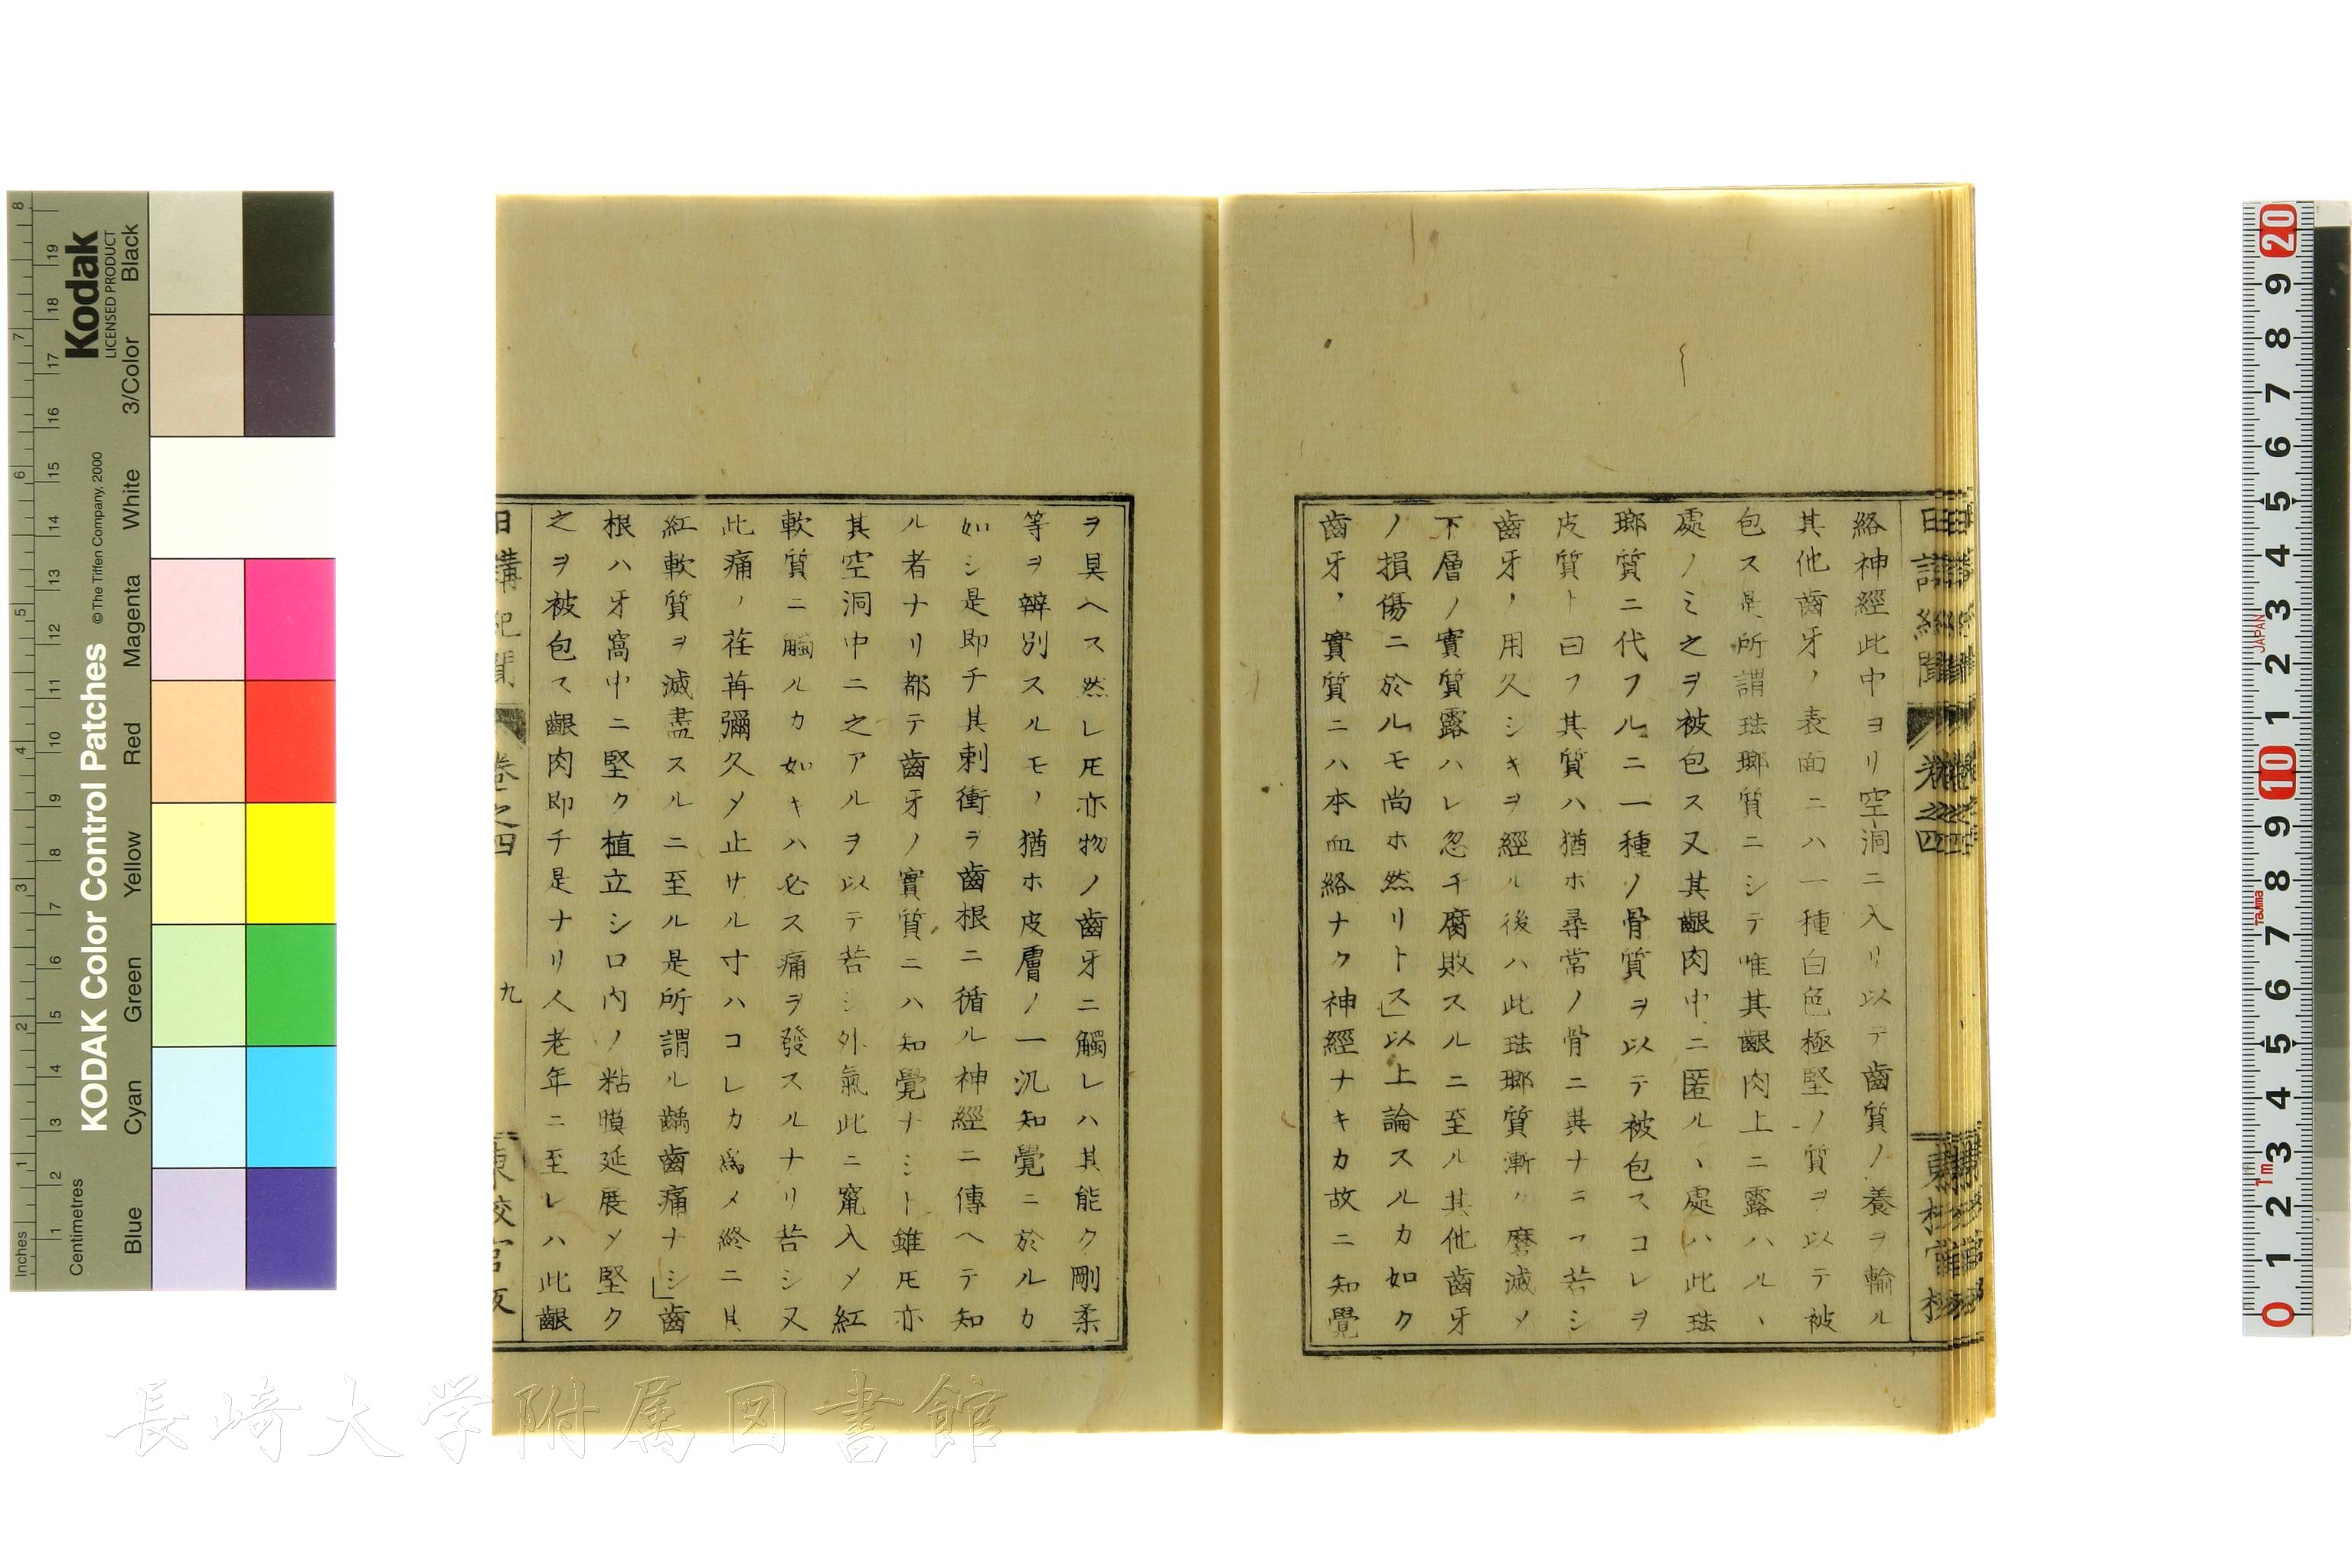 絡神經此中ヨリ空洞ニ入リ以テ齒質ノ養ヲ輸ル
其他齒牙ノ表面ニハ一種白色極堅ノ質ヲ以テ被
包ス是所謂琺瑯質ニシテ唯其齦肉上ニ露ハルヽ
處ノミ之ヲ被包ス又其齦肉中ニ匿ルヽ處ハ此琺
瑯質ニ代フルニ一種ノ骨質ヲ以テ被包スコレヲ
皮質ト曰フ其質ハ猶ホ尋常ノ骨ニ異ナラス若シ
齒牙ノ用久シキヲ經ル後ハ此琺瑯質漸ク磨滅メ
下層ノ實質露ハレ忽チ腐敗スルニ至ル其他齒牙
ノ損傷ニ於ルモ尚ホ然リトス」以上論スルカ如ク
齒牙ノ實質ニハ本血絡ナク神經ナキカ故ニ知覺
ヲ具ヘス然レ𪜈亦物ノ齒牙ニ觸レハ其能ク剛柔
等ヲ辨別スルモノ猶ホ皮膚ノ一汎知覺ニ於ルカ
如シ是即チ其刺衝ヲ齒根ニ循ル神經ニ傳ヘテ知
ル者ナリ都テ齒牙ノ實質ニハ知覺ナシト雖𪜈亦
其空洞中ニ之アルヲ以テ若シ外氣此ニ竄入メ紅
軟質ニ觸ルカ如キハ必ス痛ヲ發スルナリ若シ又
此痛ノ荏苒彌久メ止サル寸ハコレカ爲メ終ニ其
紅軟質ヲ滅盡スルニ至ル是所謂ル齲齒痛ナシ」齒
根ハ牙窩中ニ堅ク植立シ口内ノ粘膜延展メ堅ク
之ヲ被包ス齦肉即チ是ナリ人老年ニ至レハ此齦
日講紀聞 卷之四 九
KODAK Color Control Patches
© The Tiffen Company, 2000
Kodak
LICENSED PRODUCT
Inches
Centimetres
Blue Cyan Green Yellow Red Magenta White 3/Color Black
長崎大学附属図書館
JAPAN
Tajima
1m